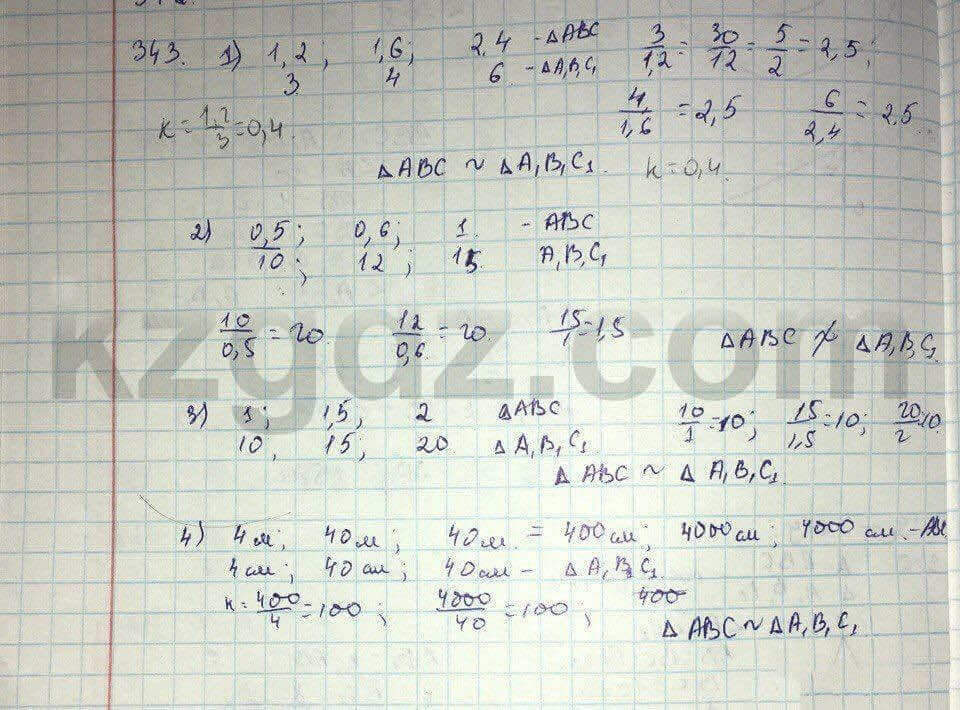 343. 1) 1,2; 1,6; 2,4 - ΔABC 3/1,2 = 30/12 = 5/2 = 2,5;
3 4 6 - ΔA₁B₁C₁
4/1,6 = 2,5 6/2,4 = 2,5
к = 1,2/3 = 0,4.
ΔABC ~ ΔA₁B₁C₁. к = 0,4.
2) 0,5; 0,6; 1. - ABC
10; 12; 15. A₁B₁C₁
10/0,5 = 20 12/0,6 = 20. 15/1 = 1,5 ΔABC ≁ ΔA₁B₁C₁
kzgdz.com
3) 1; 1,5, 2 ΔABC 10/1 = 10; 15/1,5 = 10; 20/2 = 10.
10, 15; 20 ΔA₁B₁C₁
ΔABC ~ ΔA₁B₁C₁
4) 4м; 40м; 40м = 400см; 4000см; 4000см. - ABC
4см; 40см; 40см - ΔA₁B₁C₁
к = 400/4 = 100; 4000/40 = 100; 400
ΔABC ~ ΔA₁B₁C₁